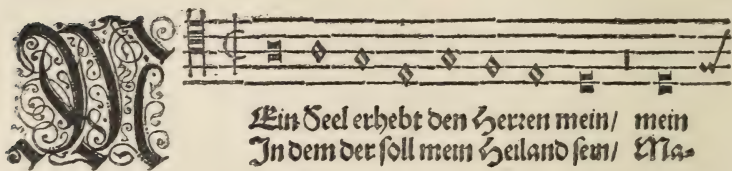 MEin Seel erhebt den Herren mein/ mein
In dem der soll mein Heiland sein/ Ma-